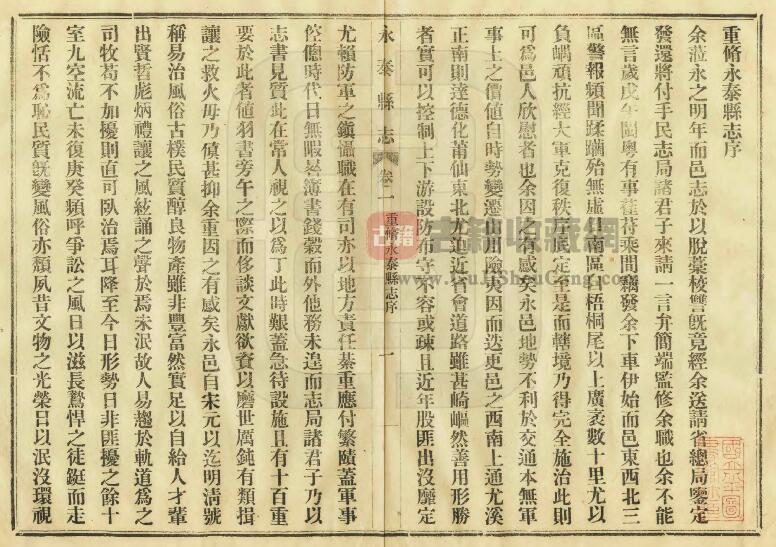 重脩永泰縣志序
余蒞永之明年而邑志於以脫藳校讐旣竟經余送請省總局鑒定
發還將付手民志局諸君子來請一言弁簡端監修余職也余不能
無言歲戊午閩粵有事萑苻乘間竊發余下車伊始而邑東西北三
區警報頻聞蹂躪殆無虛日南區白梧桐尾以上廣袤數十里尤以
負嵎頑抗經大軍克復秩序底定至是而轄境乃得完全施治此則
可爲邑人欣慰者也余因之有感矣永邑地勢不利於交通本無軍
事上之價値自時勢變遷山川險夷因而迭更邑之西南上通尤溪
正南則達德化莆仙東北尤迫近省會道路雖甚崎嶇然善用形勝
者實可以控制上下游設防布守不容或疎且近年股匪出沒靡定
永泰縣志 卷二 重脩永泰縣志序 一
尤賴防軍之鎭懾職在有司亦以地方責任綦重應付繁賾蓋軍事
倥傯時代日無暇晷簿書錢穀而外他務未遑而志局諸君子乃以
志書見質此在常人視之以爲丁此時艱蓋急待設施且有十百重
要於此者值羽書旁午之際而侈談文獻欲資以磨世厲鈍有類揖
讓之救火毋乃傎甚抑余重因之有感矣永邑自宋元以迄明淸號
稱易治風俗古樸民質醇良物產雖非豐富然實足以自給人才輩
出賢哲彪炳禮讓之風絃誦之聲於焉未泯故人易趨於軌道爲之
司牧苟不加擾則直可臥治焉耳降至今日形勢日非匪擾之餘十
室九空流亡未復庚癸頻呼爭訟之風日以滋長鷙悍之徒鋌而走
險恬不爲恥民質旣變風俗亦頹夙昔文物之光榮日以泯沒環視
古籍收藏網